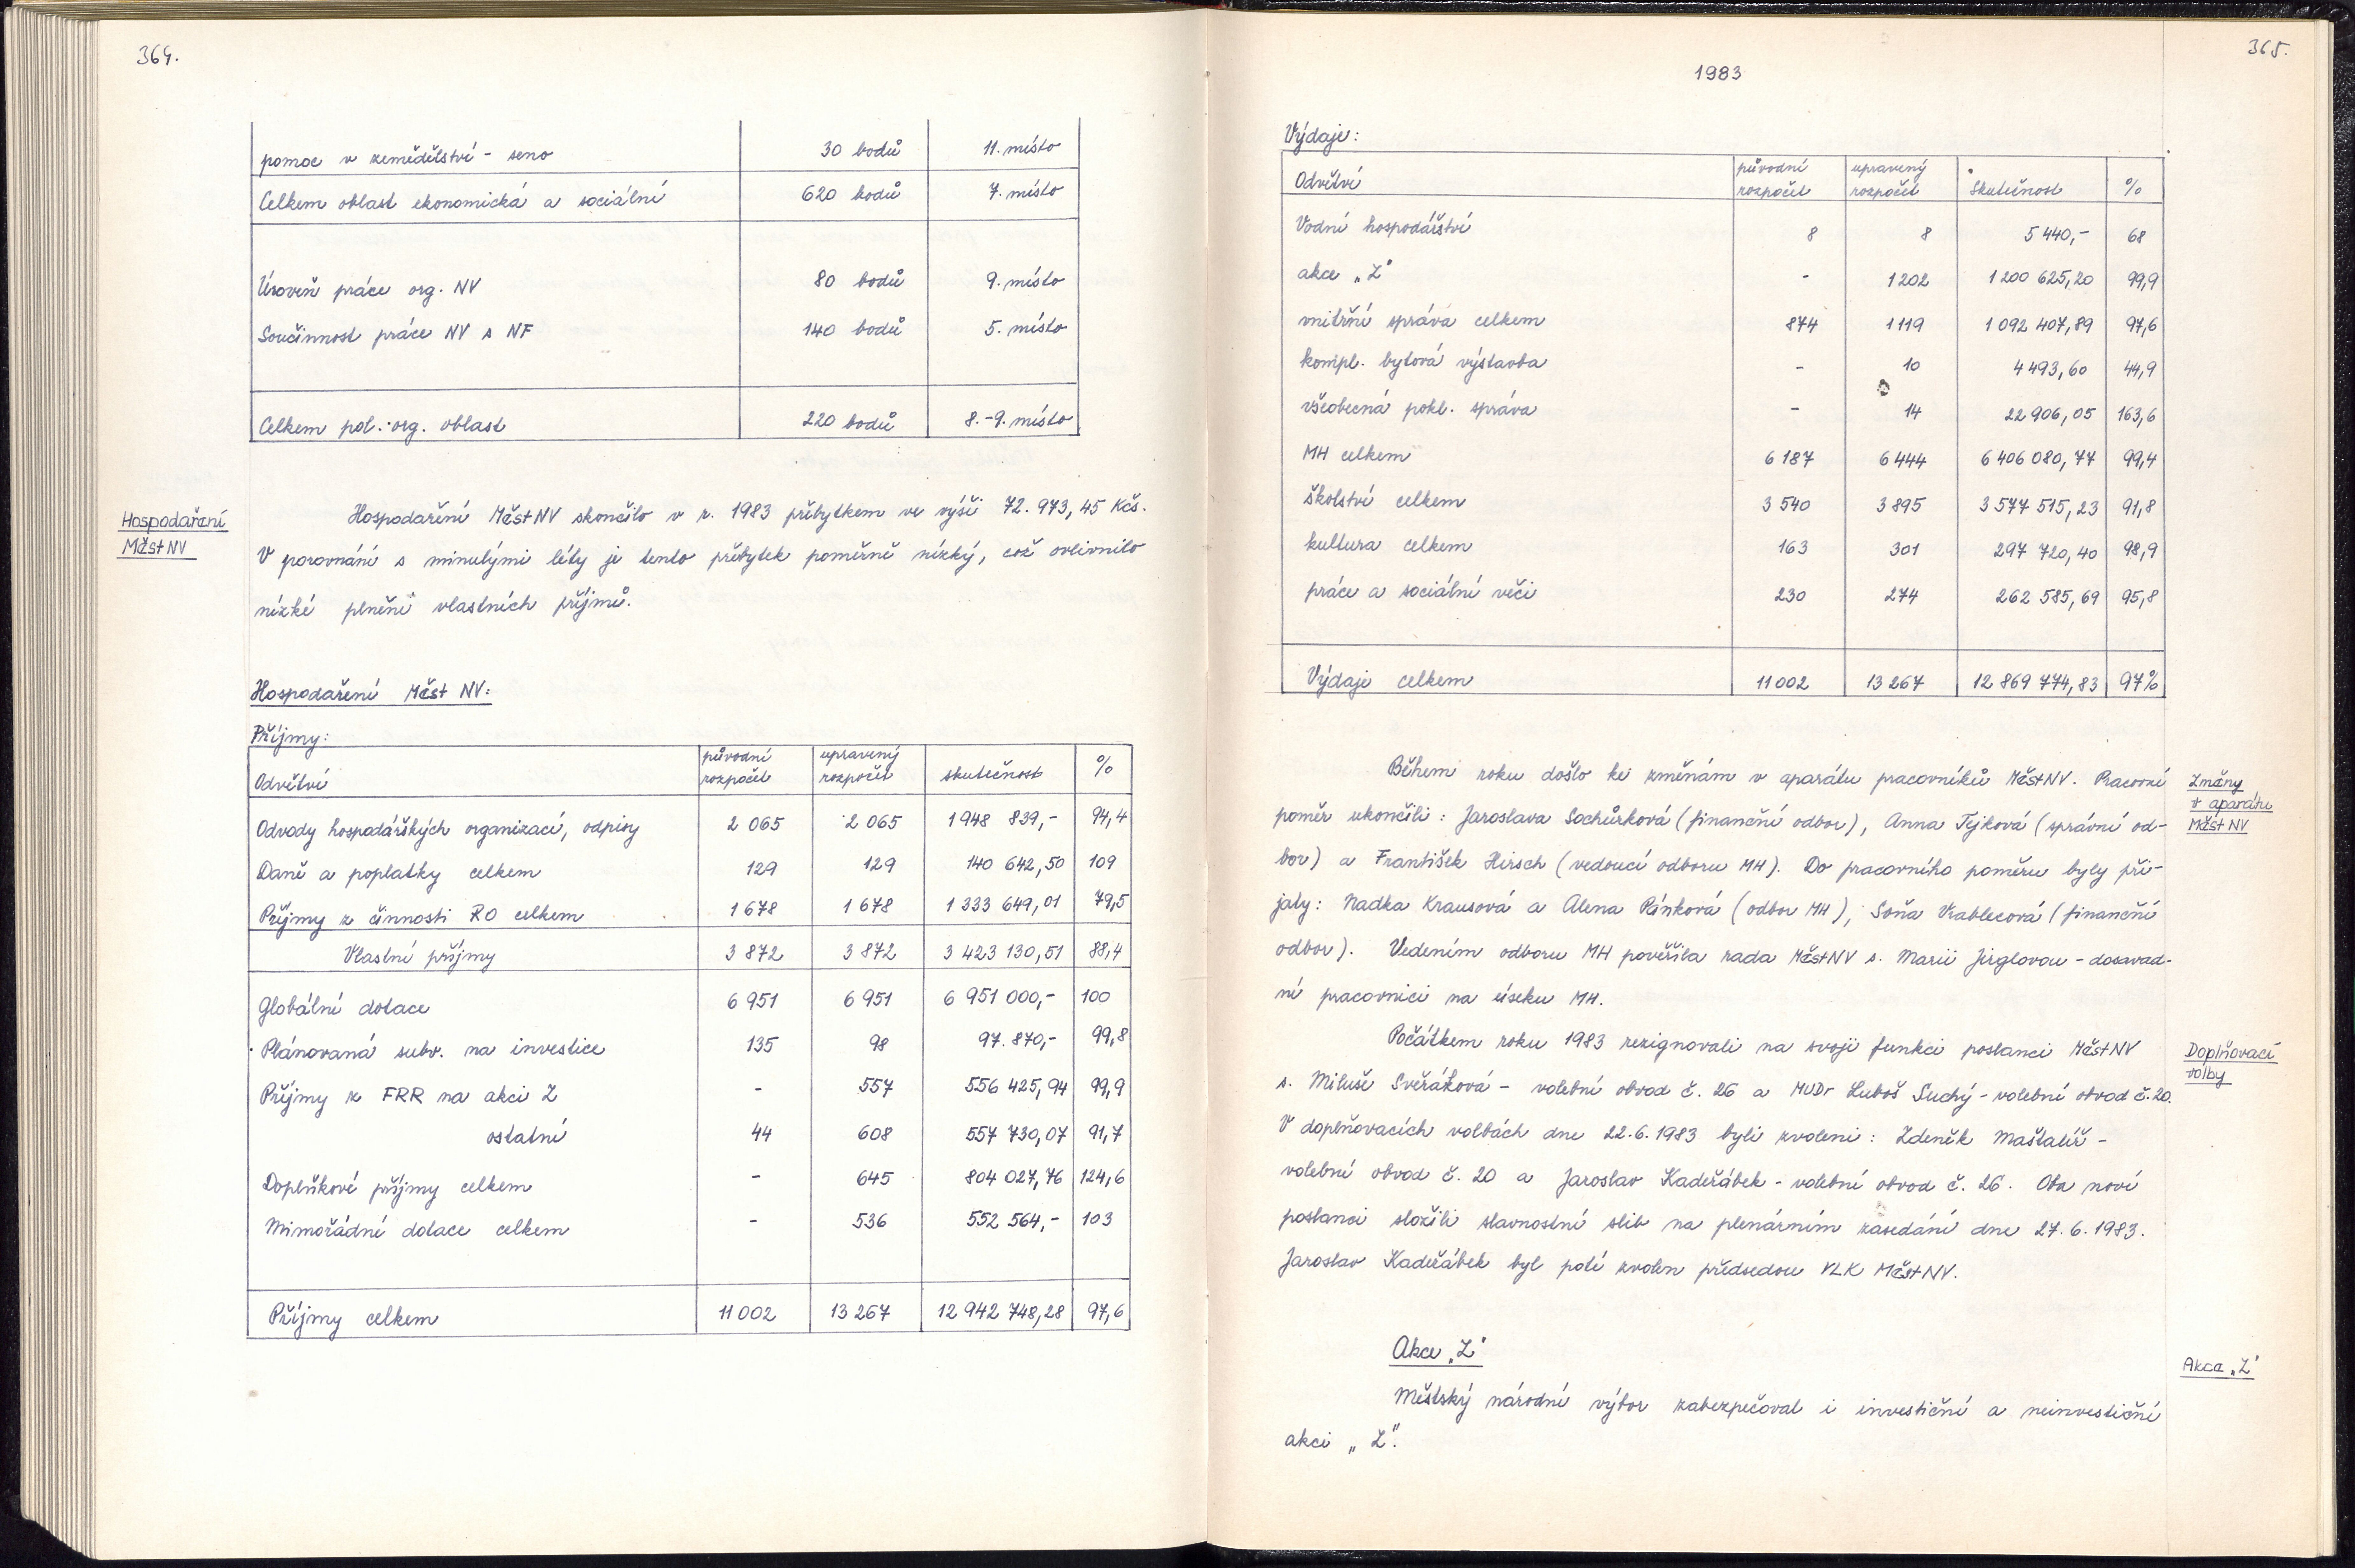 364.
pomoc v zemědělství - seno 30 bodů 11. místo
Celkem oblast ekonomická a sociální 620 bodů 7. místo
Úroveň práce org. NV 80 bodů 9. místo
Součinnost práce NV s NF 140 bodů 5. místo
Celkem pol.-org. oblast 220 bodů 8.-9. místo
Hospodaření
MěstNV
Hospodaření MěstNV skončilo v r. 1983 přebytkem ve výši 72.973,45 Kčs.
V porovnání s minulými léty je tento přebytek poměrně nízký, což ovlivnilo
nízké plnění vlastních příjmů.
Hospodaření Měst NV:
Příjmy:
Odvětví původní rozpočet upravený rozpočet skutečnost %
Odvody hospodářských organizací, odpisy 2 065 2 065 1 948 839,- 94,4
Daně a poplatky celkem 129 129 140 642,50 109
Příjmy z činnosti RO celkem 1 678 1 678 1 333 649,01 79,5
Vlastní příjmy 3 872 3 872 3 423 130,51 88,4
Globální dotace 6 951 6 951 6 951 000,- 100
Plánovaná subv. na investice 135 98 97.870,- 99,8
Příjmy z FRR na akci Z - 557 556 425,94 99,9
ostatní 44 608 557 730,07 91,7
Doplňkové příjmy celkem - 645 804 027,76 124,6
Mimořádné dotace celkem - 536 552 564,- 103
Příjmy celkem 11 002 13 267 12 942 748,28 97,6
365.
1983
Výdaje:
Odvětví původní rozpočet upravený rozpočet skutečnost %
Vodní hospodářství 8 8 5 440,- 68
akce „Z" - 1 202 1 200 625,20 99,9
vnitřní správa celkem 874 1 119 1 092 407,89 97,6
kompl. bytová výstavba - 10 4 493,60 44,9
všeobecná pokl. správa - 14 22 906,05 163,6
MH celkem 6 187 6 444 6 406 080,77 99,4
školství celkem 3 540 3 895 3 577 515,23 91,8
kultura celkem 163 301 297 720,40 98,9
práce a sociální věci 230 274 262 585,69 95,8
Výdaje celkem 11 002 13 267 12 869 774,83 97%
Během roku došlo ke změnám v aparátu pracovníků MěstNV. Pracovní
poměr ukončili: Jaroslava Sochůrková (finanční odbor), Anna Tejková (správní od-
bor) a František Hirsch (vedoucí odboru MH). Do pracovního poměru byly při-
jaty: Nadka Krausová a Alena Pánková (odbor MH), Soňa Vrablecová (finanční
odbor). Vedením odboru MH pověřila rada MěstNV s. Marii Jirglovou - dosavad-
ní pracovnici na úseku MH.
Změny
v aparátu
Měst NV
Počátkem roku 1983 rezignovali na svoji funkci poslanci MěstNV
s. Miluše Svěráková - volební obvod č. 26 a MUDr Luboš Suchý - volební obvod č. 20.
V doplňovacích volbách dne 22.6.1983 byli zvoleni: Zdeněk Maštalíř -
volební obvod č. 20 a Jaroslav Kadeřábek - volební obvod č. 26. Oba noví
poslanci složili slavnostní slib na plenárním zasedání dne 27.6.1983.
Jaroslav Kadeřábek byl poté zvolen předsedou VLK MěstNV.
Doplňovací
volby
Akce „Z"
Akce „Z"
Městský národní výbor zabezpečoval i investiční a neinvestiční
akci „Z".